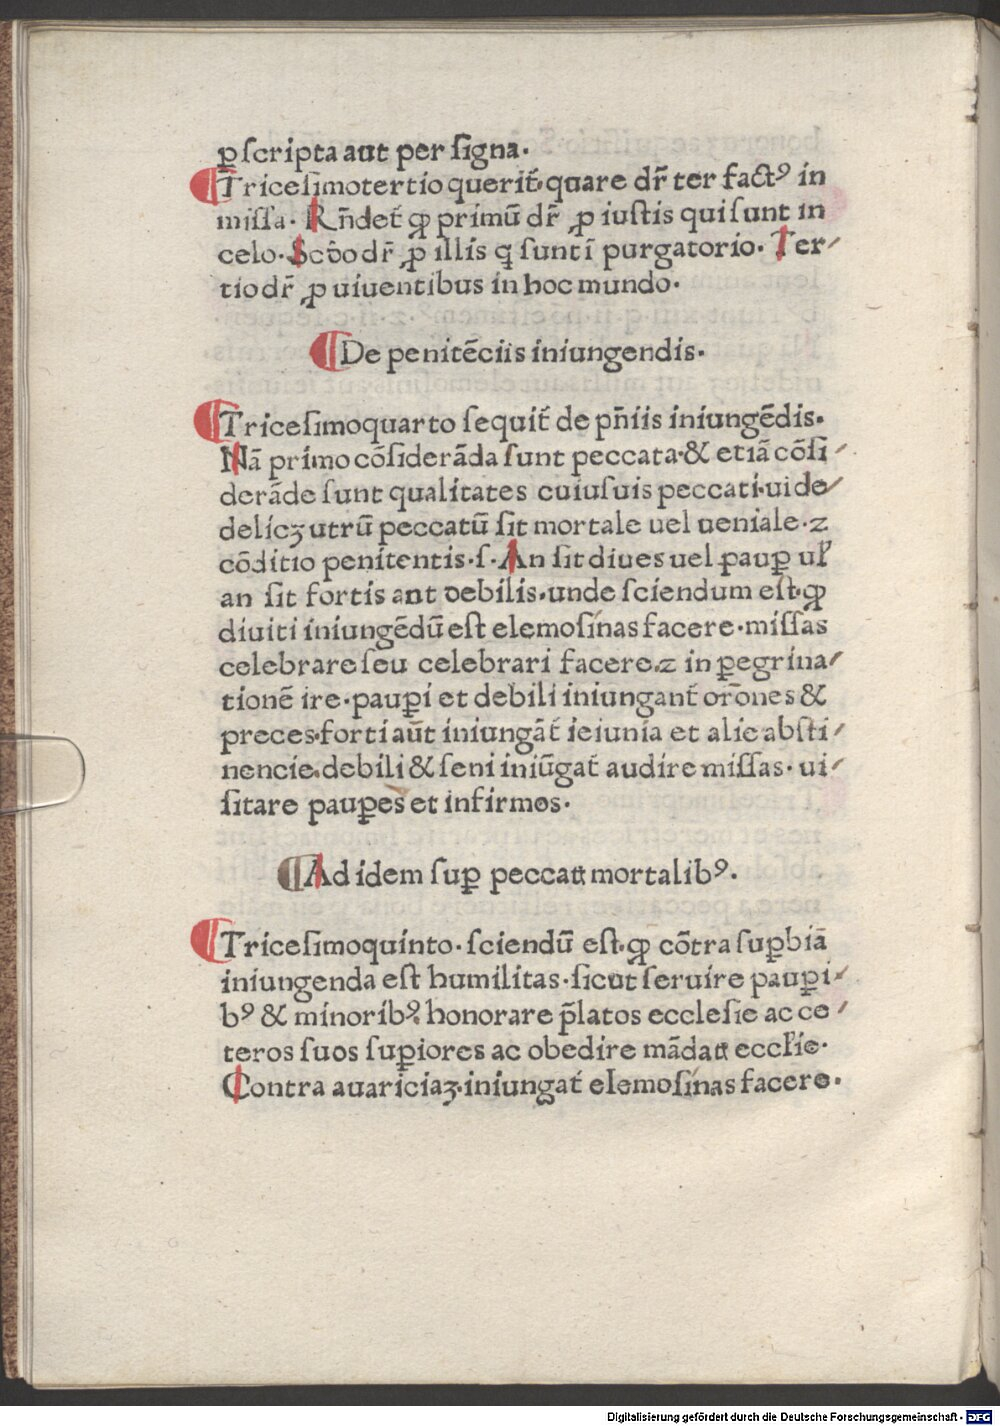 ꝑ ſcripta aut per ſigna.
¶Triceſimotertio querit᷑·quare dr̄ ter fact⁹ in
miſſa· Rn̄det᷑ ꝙ primū dr̄ ꝓ iuſtis qui ſunt in
celo·Scd̄o dr̄ ꝓ illis q̄ ſunt ī purgatorio· Ter⸗
tio dr̄ ꝓ uiuentibus in hoc mundo·
¶De penitēciis iniungendis·
¶Triceſimoquarto ſequit᷑ de pn̄iis iniungēdis·
Nā primo cōſiderāda ſunt peccata·& etiā cōſi⸗
derāde ſunt qualitates cuiuſuis peccati·uide⸗
delicꝫ utrū peccatū ſit mortale uel ueniale·⁊
cōditio penitentis·ſ·An ſit diues uel pauꝑ ul̓
an ſit fortis aut debilis·unde ſciendum eſt·ꝙ
diuiti iniungēdū eſt elemoſinas facere·miſſas
celebrare ſeu celebrari facere·⁊ in ꝑegrina⸗
tionē ire·pauꝑi et debili iniungant᷑ orōnes &
preces·forti aūt iniungāt᷑ ieiunia et alie abſti⸗
nencie·debili & ſeni iniūgat᷑ audire miſſas· ui⸗
ſitare pauꝑes et infirmos·
¶Ad idem ſuꝑ peccatꝭ mortalib⁹·
¶Triceſimoquinto·ſciendū eſt·ꝙ cōtra ſuꝑbiā
iniungenda eſt humilitas·ſicut ſeruire pauꝑi⸗
b⁹ & minorib⁹·honorare p̄latos eccleſie ac ce⸗
teros ſuos ſuꝑiores ac obedire mādatꝭ eccl̓ie·
Contra auariciaꝫ·iniungat᷑ elemoſinas facere·
Digitalisierung gefördert durch die Deutsche Forschungsgemeinschaft - DFG